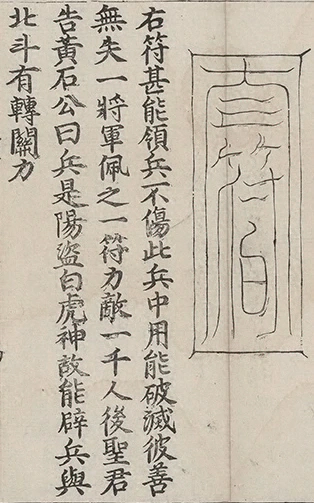 右符甚能領兵不傷此兵中用能破滅彼善
無失一將軍佩之一符力敵一千人後聖君
告黃石公曰兵是陽盜白虎神故能辟兵與
北斗有轉關力